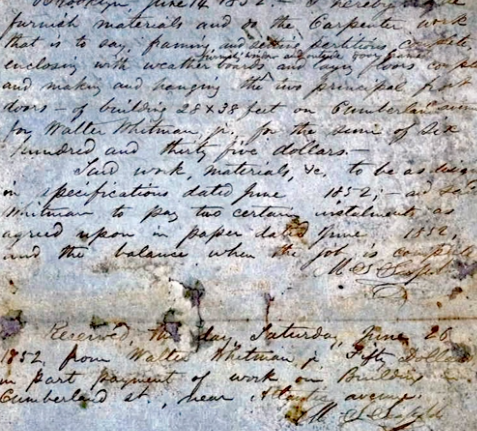 Brooklyn, June 14 1852.— I hereby
furnish materials and do the Carpenter work
that is to say, framing, and setting partitions, complete,
furnish window and outside door frames
enclosing with weather boards and laying floors
and making and hanging the two principal front
doors — of building 28 x 38 feet on Cumberland
for Walter Whitman, jr. for the sum of Six
hundred and thirty five dollars.—
Said work, materials, &c. to be as
in specifications dated June 1852;— and
Whitman to pay two certain instalments as
agreed upon in paper dated June 1852,
and the balance when the job is complete
Received, this day, Saturday, June 26
1852, from Walter Whitman, jr Fifty Dollars
in part payment of work on Building
Cumberland st, near Atlantic avenue.